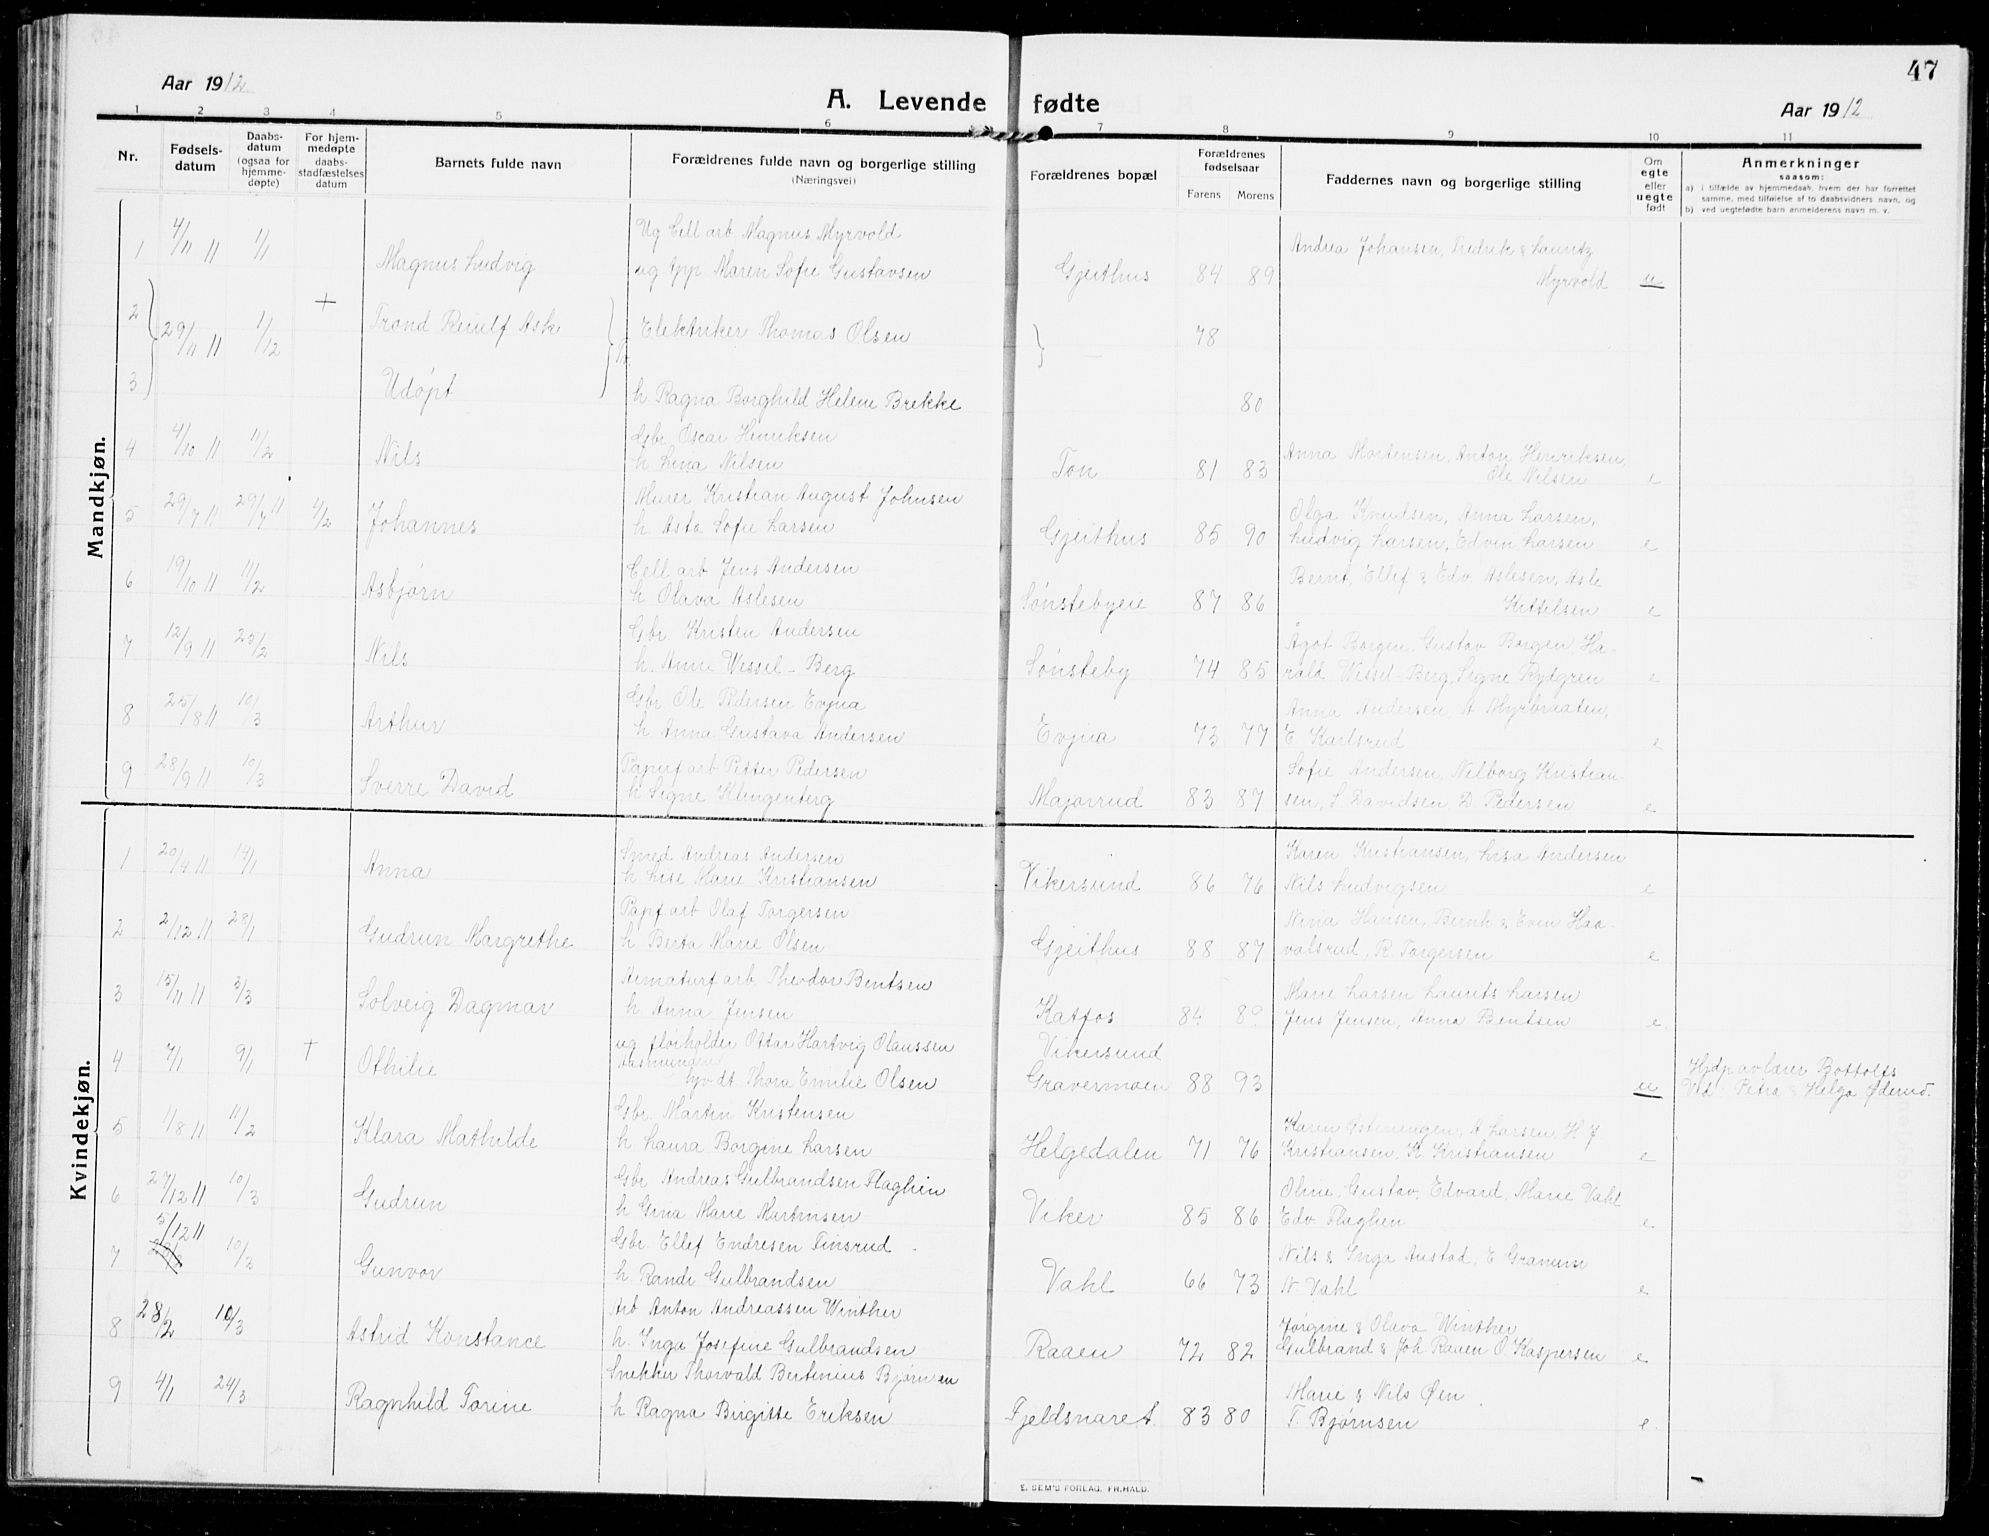 47
Aar 1912
A. Levende fødte
Aar 1912
1 2 3 4 5 6 7 8 9 10 11
Nr.
Fødsels-
datum
Daabs-
datum
(ogsaa for
hjemme-
døpte)
For hjem-
medøpte
daabs-
stadfæstelses
datum
Barnets fulde navn
Forældrenes fulde navn og borgerlige stilling
(Næringsvei)
Forældrenes bopæl
Forældrenes
fødselsaar
Farens Morens
Faddernes navn og borgerlige stilling
Om
egte
eller
uegte
født
Anmerkninger
saasom:
a) i tilfælde av hjemmedaab, hvem der har forrettet
samme, med tilføielse af to daabsvidners navn, og
b) ved uegtefødte barn anmelderens navn m. v.
Mandkjøn.
1 4/11 11 1/1 Magnus Ludvig
Ug Cell arb Magnus Myrvold
ug pp Maren Sofie Gustavsen
Gjeithus 84 89
Andrea Johansen, Fredrik & Lauritz
Myrvold u
2 29/11 11 1/12 + Trond Reiulf Ask
Elektriker Thomas Olsen
— 78
3 Udøpt
h. Ragna Borghild Helene Brekke
80
4 4/10 11 11/2 Nils
Gbr Oscar Henriksen
h Lina Nilsen
Ton 81 83
Anna Mortensen, Anton Henriksen,
Ole Nilsen e
5 29/7 11 29/7 11 4/2 Johannes
Murer Kristian August Johnsen
h. Asta Sofie Larsen
Gjeithus 85 90
Olga Knudsen, Anna Larsen,
Ludvig Larsen, Edvin Larsen e
6 19/10 11 11/2 Asbjørn
Cell arb Jens Andersen
h Olava Aslesen
Sønstebyeie 87 86
Bernt, Ellef & Edv. Aslesen, Asle
Kittelsen e
7 12/9 11 25/2 Nils
Gbr Kristen Andersen
h. Anne Wessel-Berg
Sønsteby 74 85
Ågot Borgen, Gustav Borgen, Ha-
rald Wessel-Berg, Signe Rydgren e
8 25/8 11 10/3 Arthur
Gbr Ole Pedersen Evjua
h Anna Gustava Andersen
Evjua 73 77
Anna Andersen, A Myrbraaten,
E Karlsrud e
9 28/9 11 10/3 Sverre David
Papirf arb Petter Pedersen
h Signe Klingenberg
Majorrud 83 87
Sofie Andersen, Nilborg Kristian-
sen, S. Davidsen, D. Pedersen e
Kvindekjøn.
1 20/4 11 14/1 Anna
Smed Andreas Andersen
h Lise Marie Kristiansen
Vikersund 86 76
Karen Kristiansen, Lisa Andersen
Nils Ludvigsen e
2 2/12 11 28/1 Gudrun Margrethe
Papf arb Olaf Torgersen
h Berta Marie Olsen
Gjeithus 88 87
Nina Hansen, Bernh & Even Haa-
valsrud, R. Torgersen e
3 15/11 11 3/3 Solveig Dagmar
Armaturf arb Theodor Bentsen
h Anna Jensen
Katfos 84
Marie Larsen Laurits Larsen
Jens Jensen, Anna Bentsen e
4 7/1 9/1 + Othilie
ug fløiholder Ottar Hartvig Olaussen
Thora Emilie Olsen
Vikersund
Gravermoen 88 93
u
Hjdp av lærer Bottolfs
Vid Petra & Helga Øderud.
5 1/8 11 11/2 Klara Mathilde
Gbr. Martin Kristensen
h Laura Borgine Larsen
Helgedalen 71 76
Karen A Larsen, H J
Kristiansen, K Kristiansen e
6 27/12 11 10/3 Gudrun
Gbr Andreas Gulbrandsen Flaghen
h Gina Marie Martinsen
Viker 85 86
Oline, Gustav, Edvard, Marie Vahl
Edv Flaghen e
7 5/12 11 10/3 Gunvor
Gbr. Ellef Endresen Finsrud
h. Randi Gulbrandsen
Vahl 66 73
Nils & Inga Austad, E Granum
N Vahl e
8 28/2 10/3 Astrid Konstance
Arb Anton Andreassen Winther
h. Inga Josefine Gulbrandsen
Raaen 72 82
Jørgine & Olava Winther
Gulbrand & Joh Raaen O Kaspersen e
9 4/1 24/3 Ragnhild Torine
Snekker Thorvald Bertinius Bjørnsen
h Ragna Birgitte Eriksen
Fjeldsnaret. 83 80
Marie & Nils Øen
T. Bjørnsen e.
E. SEM'S FORLAG, FR.HALD.